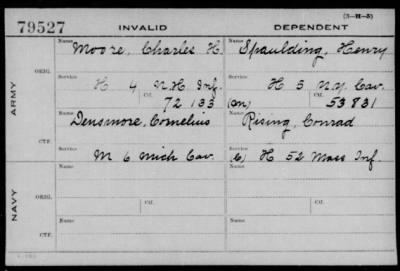 (3-H-5)
79527 INVALID DEPENDENT
Name Moore, Charles H. Name Spaulding, Henry
ORIG. Service H 4 N.H. Inf. Service H 5 N.Y. Cav.
Ctf. 72 133 (m) Ctf. 53 831
ARMY
Name Densmore, Cornelius Name Rising, Conrad
CTF. Service M 6 Mich Cav. Service (C) H 52 Mass Inf.
NAVY
Name Name
ORIG. Ctf. Ctf.
Name Name
CTF.